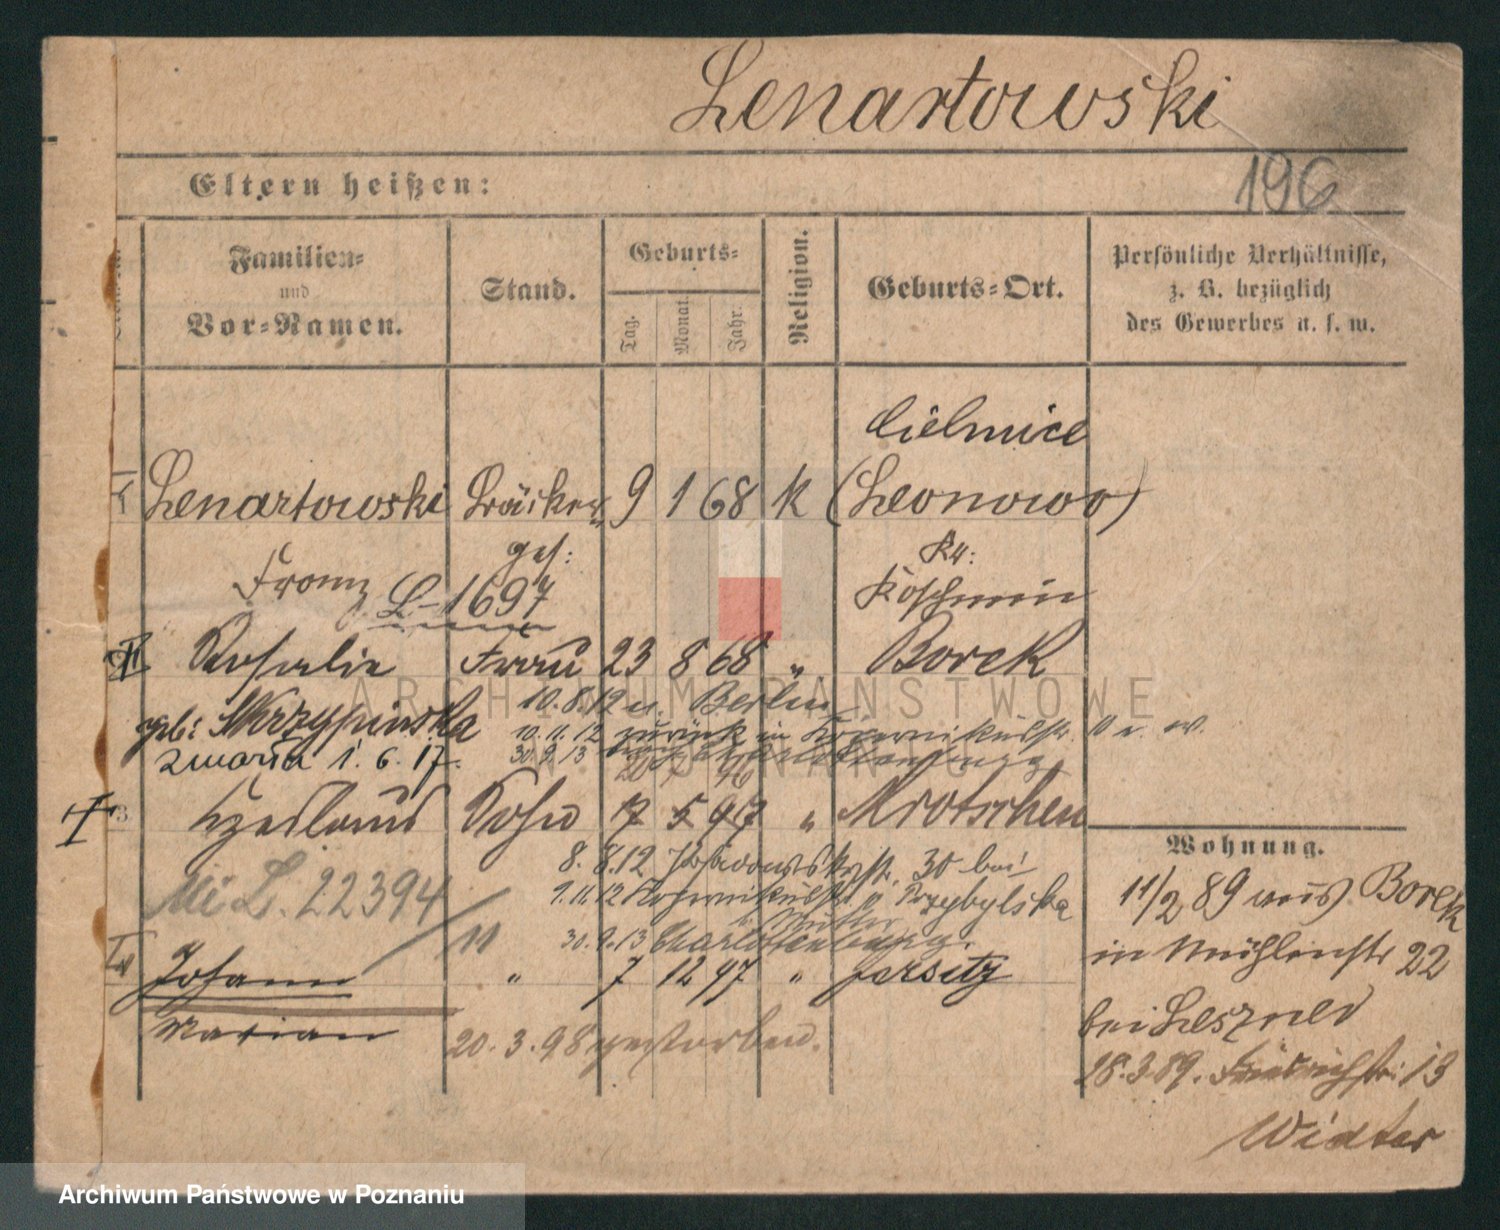 Lenartowski
196
Eltern heißen:
Familien-
und
Vor-Namen.
Stand.
Geburts-
Tag.
Monat.
Jahr.
Religion.
Geburts-Ort.
Persönliche Verhältnisse,
z. B. bezüglich
des Gewerbes u. s. w.
Cielmice
Lenartowski Bäcker 9 1 68 k (Leonowo)
gef:
Kr:
Franz L-1697 Koschmin
Rosalie Frau 23 8 68 " Borek
10.8.12 n. Berlin
geb: Skrzypinska 10.11.12 zurück in
zmarła 1.6.17. 30.9.13
Czeslaus Sohn 17 5 97 " Mrotschen
Wohnung.
8.8.12 30 bei
Mi L. 22394 1.11.12 Przybylska
11/2 89 aus Borek
11 30.9.13 Charlottenburg.
in Mühlenstr 22
Johann " 7 12 97 " Jersitz
bei
Marian 20.3.98 gestorben.
28.3.89. Friedrichstr: 13
Widter
ARCHIWUM PAŃSTWOWE
W POZNANIU
Archiwum Państwowe w Poznaniu